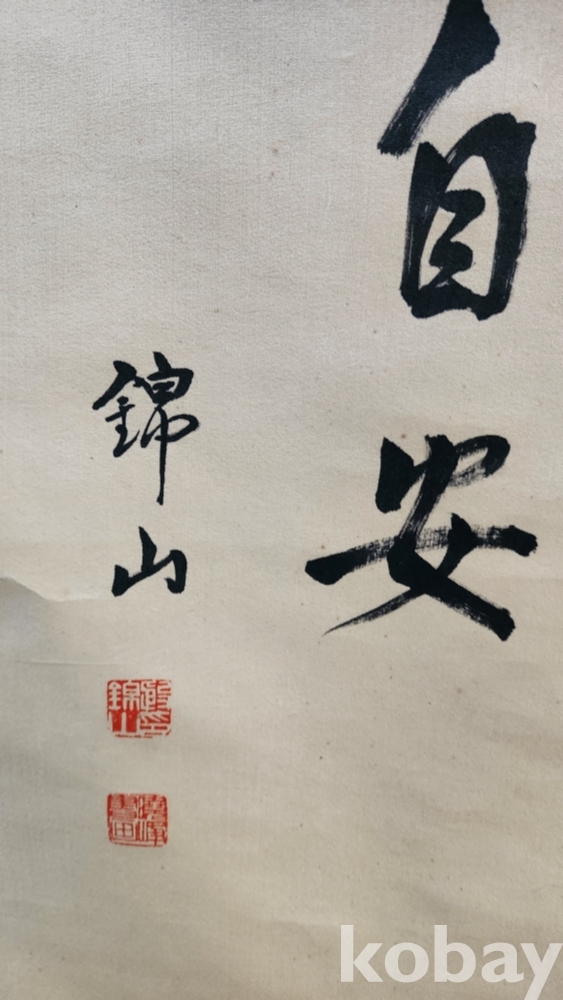 自安
錦山
kobay